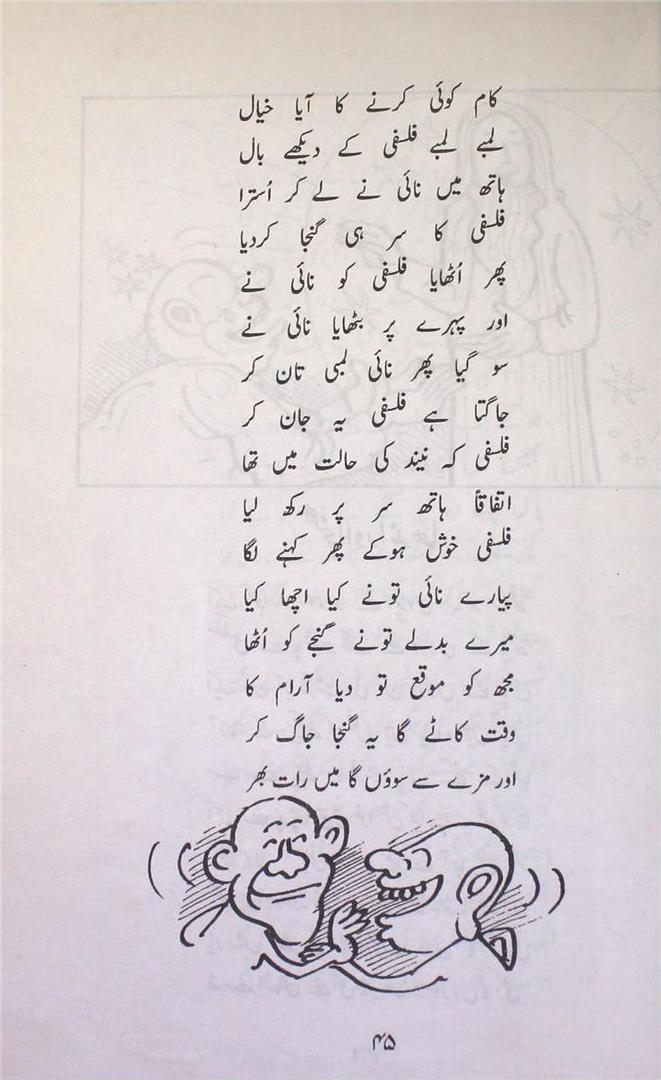 کام کوئی کرنے کا آیا خیال
لمبے لمبے فلسفی کے دیکھے بال
ہاتھ میں نائی نے لے کر اُسترا
فلسفی کا سر ہی گنجا کردیا
پھر اُٹھایا فلسفی کو نائی نے
اور پہرے پر بٹھایا نائی نے
سو گیا پھر نائی لمبی تان کر
جاگتا ہے فلسفی یہ جان کر
فلسفی کہ نیند کی حالت میں تھا
اتفاقاً ہاتھ سر پر رکھ لیا
فلسفی خوش ہوکے پھر کہنے لگا
پیارے نائی تونے کیا اچھا کیا
میرے بدلے تونے گنجے کو اُٹھا
مجھ کو موقع تو دیا آرام کا
وقت کاٹے گا یہ گنجا جاگ کر
اور مزے سے سوؤں گا میں رات بھر
۴۵